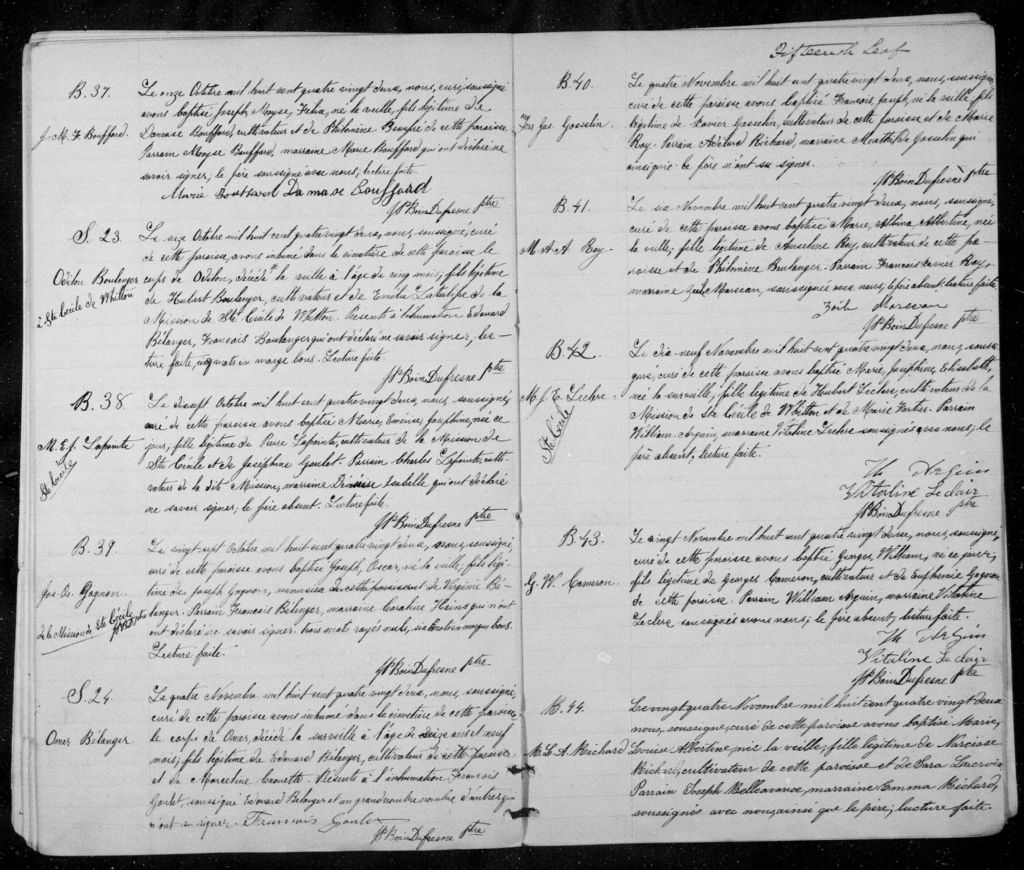 B. 37.
J. M. F. Bouffard.
Le onze Octobre mil huit cent quatre vingt deux, nous, curé, soussigné
avons baptisé Joseph, Moyse, né la veille, fils légitime de
Damase Bouffard, cultivateur et de Philomène Beaupré de cette paroisse
Parrain Moyse Bouffard, marraine Marie Bouffard qui ont déclaré ne
savoir signer; le père soussigné avec nous; lecture faite.
Marie Bouffard Damase Bouffard
JP Boin Dufresne ptre
S. 23.
Odilon Boulanger
à Ste Cécile de Whitton
Le seize Octobre mil huit cent quatre vingt deux, nous, soussigné, curé
de cette paroisse, avons inhumé dans le cimetière de cette paroisse le
corps de Odilon, décédé la veille à l'âge de cinq mois; fils légitime
de Hubert Boulanger, cultivateur et de Emélie Latulipe de la
Mission de Ste Cécile de Whitton. Présents à l'inhumation Edouard
Bélanger, François Boulanger qui ont déclaré ne savoir signer, lec-
ture faite, mots en marge bons. Lecture faite.
JP Boin Dufresne ptre
B. 38.
M. E. J. Lapointe
Ste Cécile
Le dixsept Octobre mil huit cent quatre vingt deux, nous, soussigné,
curé de cette paroisse avons baptisé Marie, Joséphine, née ce
jour, fille légitime de Pierre Lapointe, cultivateur de la Mission de
Ste Cécile et de Joséphine Goulet. Parrain Charles Lapointe, culti-
vateur de la dite Mission, marraine Isabelle qui ont déclaré
ne savoir signer; le père absent. Lecture faite.
JP Boin Dufresne ptre
B. 39.
Jos. O. Gagnon.
de la Mission de Ste Cécile
Le vingt sept Octobre mil huit cent quatre vingt deux, nous, soussigné,
curé de cette paroisse avons baptisé Joseph, Oscar, né la veille; fils légi-
time de Joseph Gagnon, menuisier de cette paroisse et de Virginie Bé-
langer. Parrain François Bélanger, marraine Caroline Hains qui n'ont
ont déclaré ne savoir signer. Trois mots rayés nuls, six mots en marge bons.
Lecture faite.
JP Boin Dufresne ptre.
S. 24
Omer Bélanger
Le quatre Novembre mil huit cent quatre vingt deux, nous, soussigné,
curé de cette paroisse avons inhumé dans le cimetière de cette paroisse
le corps de Omer, décédé la surveille à l'âge de seize ans et neuf
mois; fils légitime de Edouard Bélanger, cultivateur de cette paroisse
et de Marceline Caouette. Présents à l'inhumation François
Goulet, soussigné Edouard Bélanger et un grand nombre d'autres qui
n'ont su signer. Francois Goulet
JP Boin Dufresne ptre
Fifteenth Leaf
B. 40.
Frs Jos. Gosselin.
Le quatre Novembre mil huit cent quatre vingt deux, nous, soussigné
curé de cette paroisse avons baptisé François, Joseph, né la veille, fils
légitime de Xavier Gosselin, cultivateur de cette paroisse et de Marie
Roy. Parrain Adélard Richard, marraine Mathilde Gosselin qui
ainsi que le père n'ont su signer.
JP Boin Dufresne ptre
B. 41.
M. A. A Roy
Le six Novembre mil huit cent quatre vingt deux, nous, soussigné,
curé de cette paroisse avons baptisé Marie, Albina, Albertine, née
la veille, fille légitime de Anselme Roy, cultivateur de cette pa-
roisse et de Philomène Boulanger. Parrain François Xavier Roy,
marraine Zoile Marceau, soussignée avec nous; le père absent. lecture faite,
Zoile Marceau
JP Boin Dufresne ptre
B. 42
M. J. E. Leclerc
Ste Cécile
Le dix-neuf Novembre mil huit cent quatre vingt deux, nous, soussi-
gné, curé de cette paroisse avons baptisé Marie, Joséphine, Elisabeth,
née la surveille; fille légitime de Hubert Leclerc, cultivateur de la
Mission de Ste Cécile de Whitton et de Marie Fortier. Parrain
William Arguin, marraine Vitaline Leclerc soussignés avec nous; le
père absent, lecture faite.
Wm Arguin
Vitaline Leclair
JP Boin Dufresne ptre
B. 43.
G. W. Cameron.
Le vingt Novembre mil huit cent quatre vingt deux, nous, soussigné,
curé de cette paroisse avons baptisé Georges, William, né ce jour;
fils légitime de Georges Cameron, cultivateur et de Euphémie Gagnon
de cette paroisse. Parrain William Arguin, marraine Vitaline
Leclerc soussignés avec nous; le père absent, lecture faite.
Wm Arguin
Vitaline Leclair
JP Boin Dufresne ptre
B. 44.
M. L. A Richard
Le vingt quatre Novembre mil huit cent quatre vingt deux
nous, soussigné, curé de cette paroisse avons baptisé Marie,
Louise Albertine, née la veille, fille légitime de Narcisse
Richard, cultivateur de cette paroisse et de Sara Lacroix
Parrain Joseph Bellavance, marraine Emma Richard,
soussignés avec nous, ainsi que le père; lecture faite